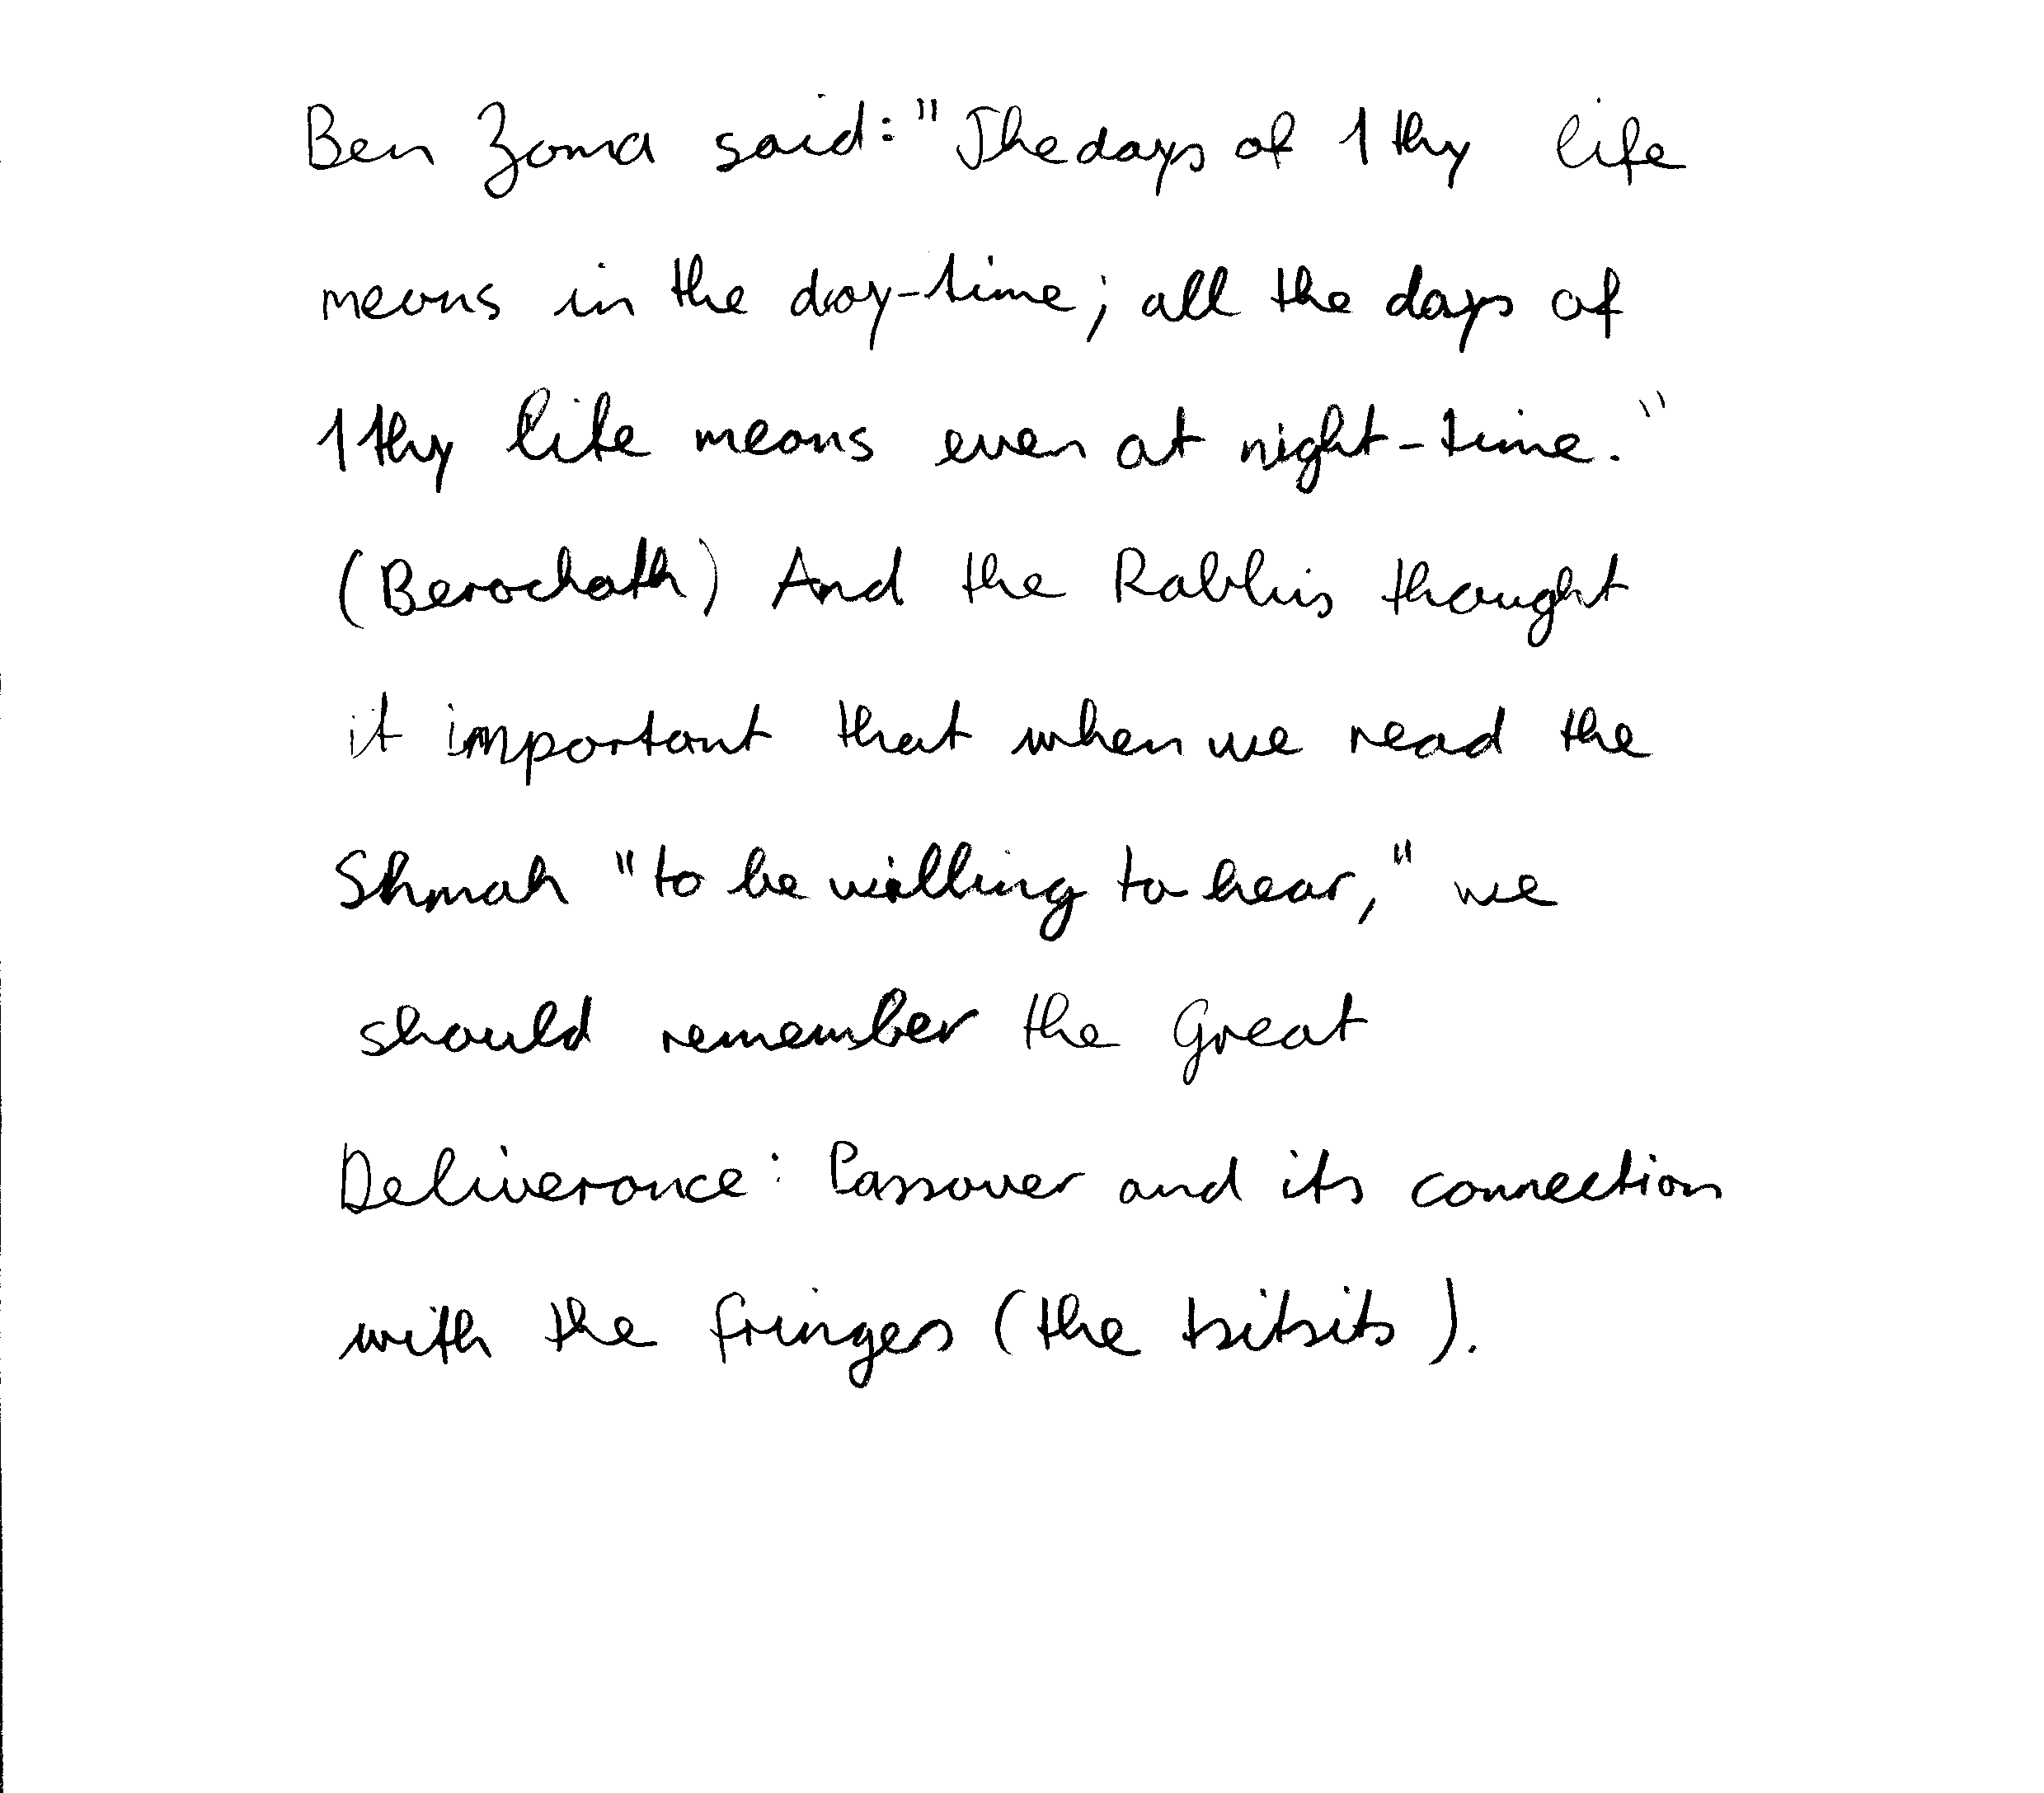 Ben Zoma said: "The days of 1thy life
means in the day-time; all the days of
1thy life means even at night-time."
(Berochoth) And the Rabbis thought
it important that when we read the
Shmah "to be willing to hear," we
should remember the Great
Deliverance: Passover and its connection
with the fringes (the tsitsits).